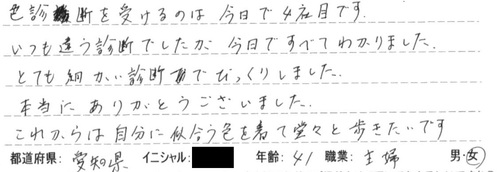 色診断を受けるのは今日で4社目です.
いつも違う診断でしたが、今日ですべてわかりました.
とても細かい診断でびっくりしました.
本当にありがとうございました.
これからは自分に似合う色を着て堂々と歩きたいです
都道府県: 愛知県 イニシャル: 年齢: 41 職業: 主婦 男・女